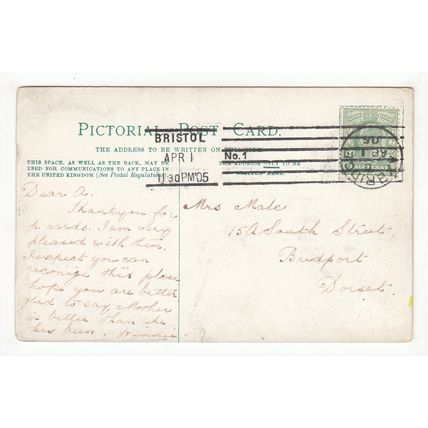 PICTORIAL POST CARD.
THE ADDRESS TO BE WRITTEN ON
THIS SPACE, AS WELL AS THE BACK, MAY BE
USED FOR COMMUNICATIONS TO ANY PLACE IN
THE UNITED KINGDOM (See Postal Regulations)
BRISTOL
APR 1
11 30PM '05
No. 1
ADDRESS ONLY TO BE
WRITTEN HERE.
HALFPENNY
AP 1
05
Dear A.
Thankyou for
p cards. I am very
pleased with them.
I expect you can
reconize this place
hope you are better
glad to say Mother
is better than she
has been. Winnie
Mrs Male
15A South Street
Bridport
Dorset.